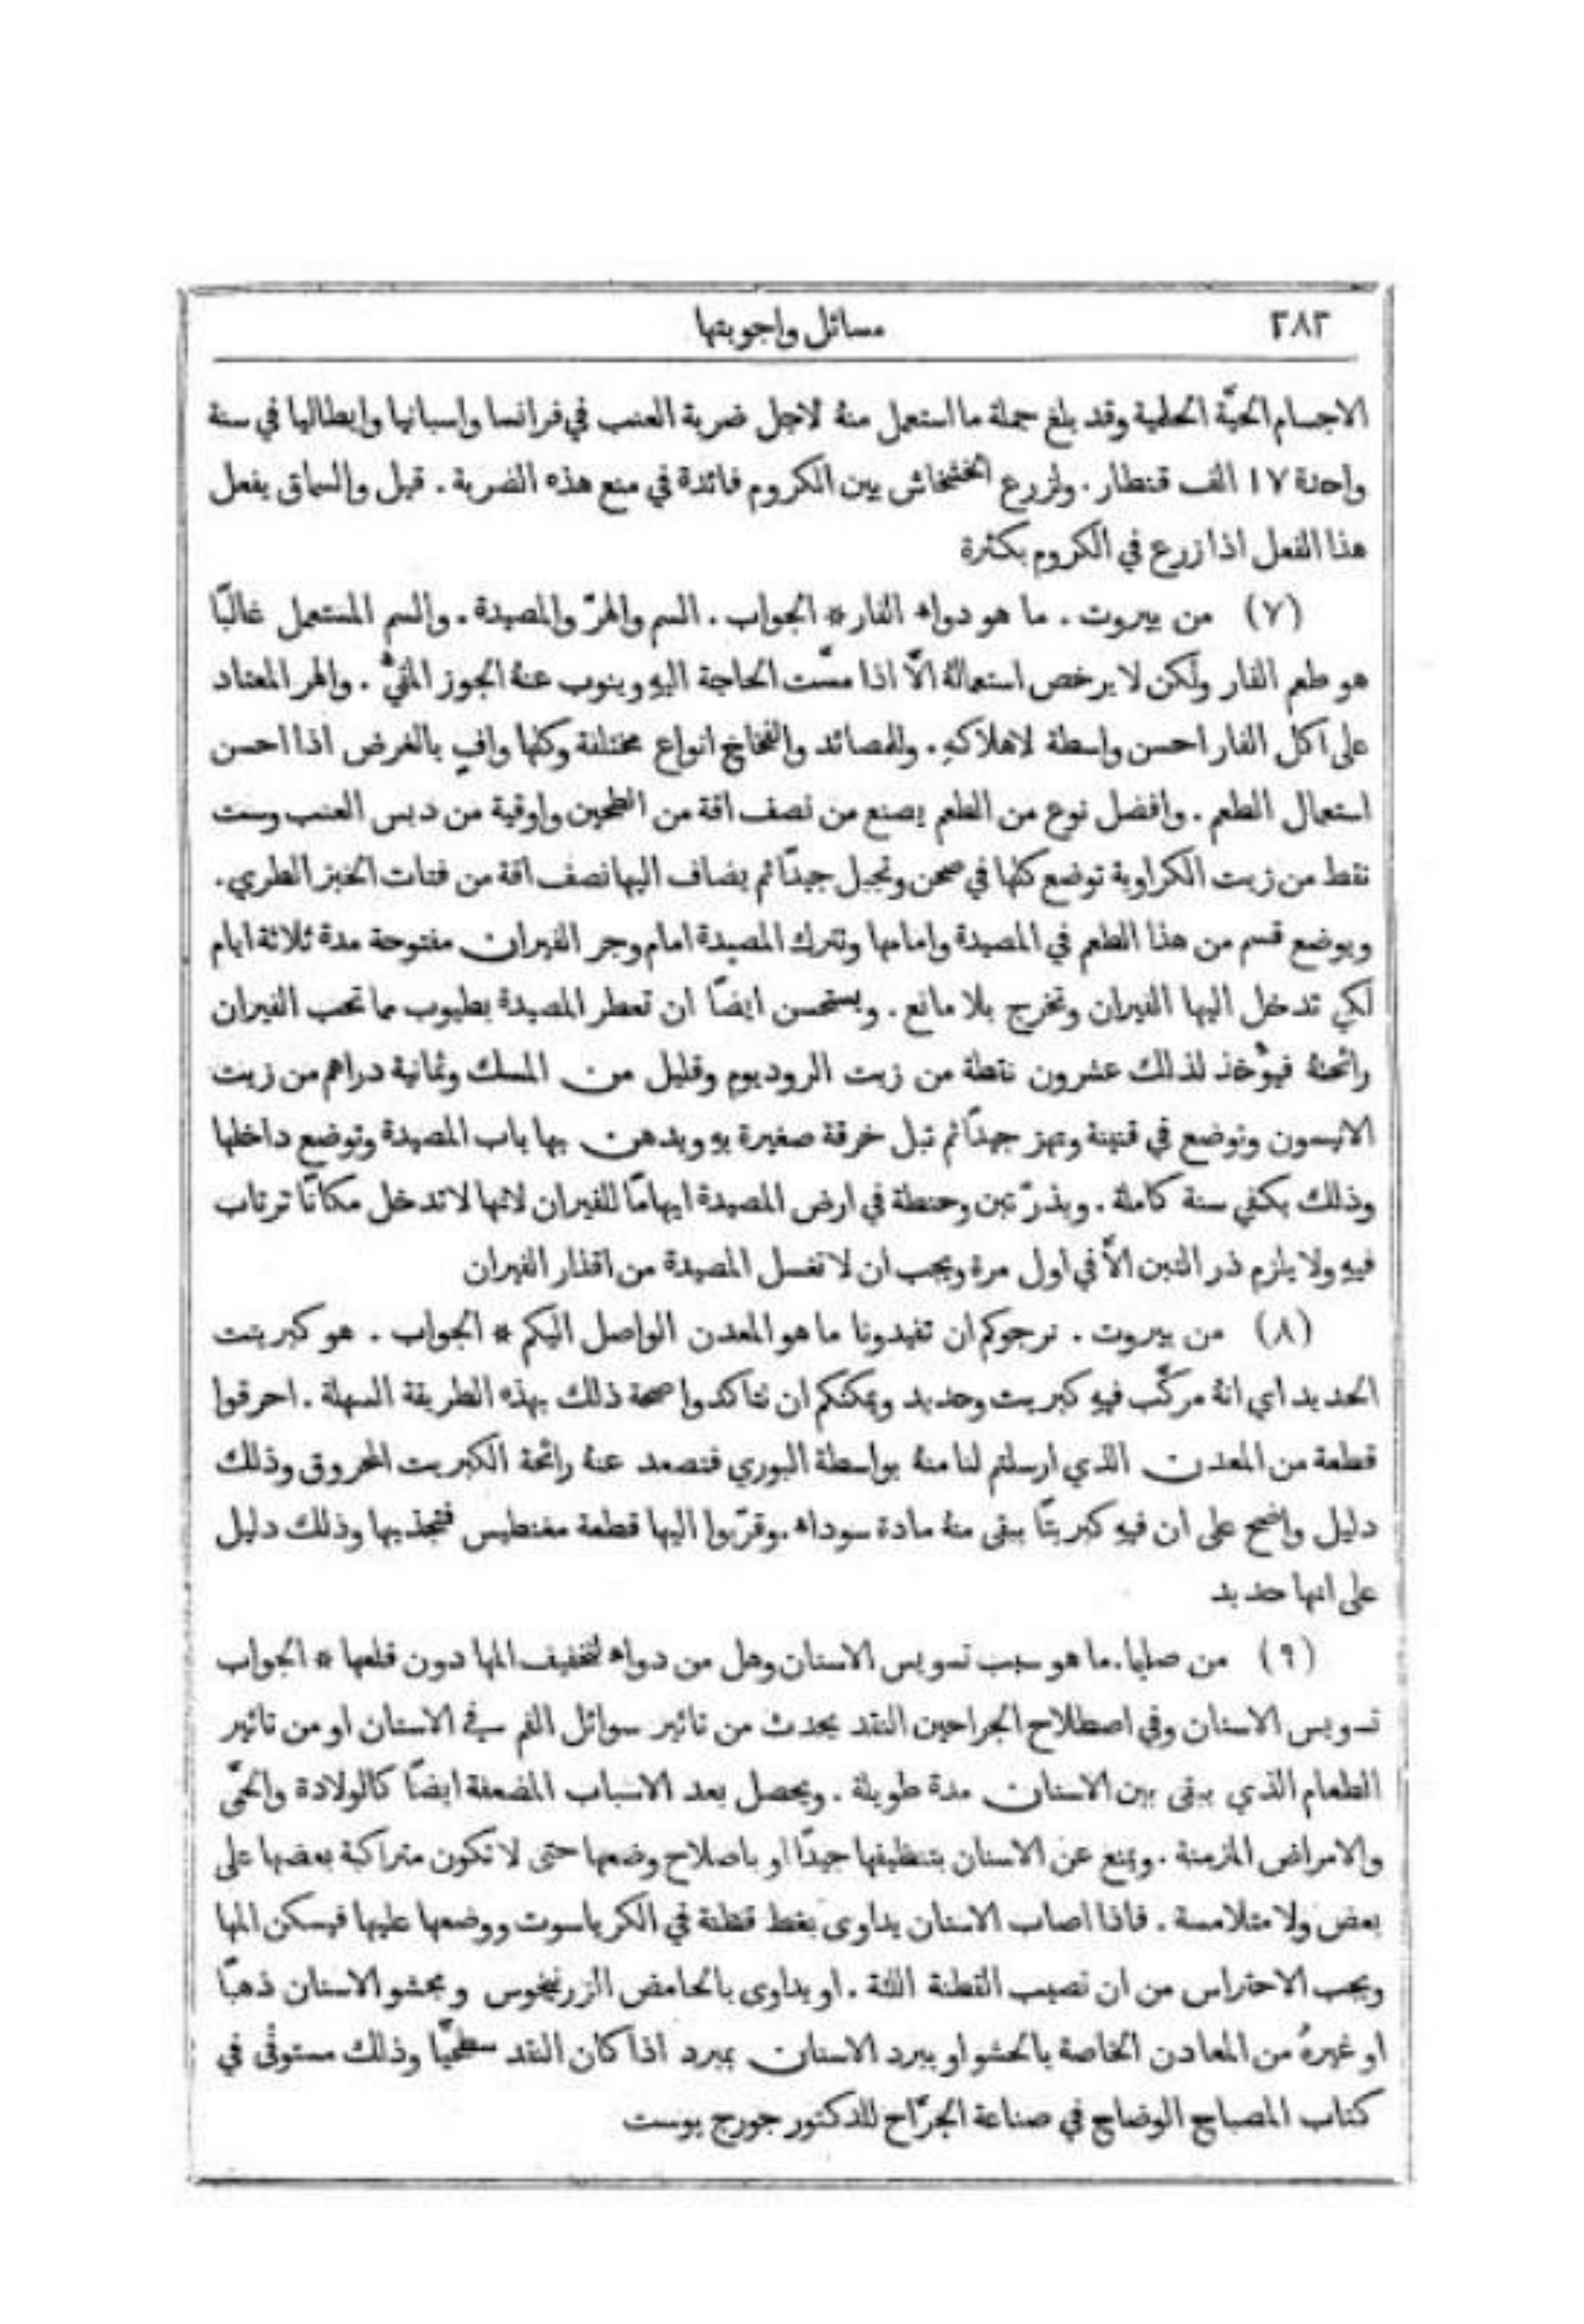 ٢٨٢
مسائل واجوبتها
الاجسام الحيَّة الحلمية وقد بلغ جملة ما استعمل منهُ لاجل ضربة العنب في فرانسا واسبانيا وايطاليا في سنة
واحدة ١٧ الف قنطار. ولزرع الخشخاش بين الكروم فائدة في منع هذه الضربة. قيل والسماق يفعل
هذا الفعل اذا زرع في الكروم بكثرة
(٧) من بيروت. ما هو دواء الفار * الجواب. السم والهرّ والمصيدة. والسم المستعمل غالبًا
هو طعم الفار ولكن لا يرخص استعمالهُ الَّا اذا مسَّت الحاجة اليهِ وينوب عنهُ الجوز المقيّْ. والهر المعتاد
على اكل الفار احسن واسطة لاهلاكهِ. وللمصائد والفخاخ انواع مختلفة وكلها وافٍ بالغرض اذا احسن
استعمال الطعم. وافضل نوع من الطعم يصنع من نصف اقة من الطحين واوقية من دبس العنب وست
نقط من زيت الكراوية توضع كلها في صحن وتجبل جيدًا ثم يضاف اليها نصف اقة من فتات الخبز الطري.
ويوضع قسم من هذا الطعم في المصيدة وامامها وتترك المصيدة امام وجر الفيران مفتوحة مدة ثلاثة ايام
لكي تدخل اليها الفيران وتخرج بلا مانع. ويستحسن ايضًا ان تعطر المصيدة بطيوب مما تحب الفيران
رائحتهُ فيؤخذ لذلك عشرون نقطة من زيت الروديوم وقليل من المسك وثمانية دراهم من زيت
الانيسون وتوضع في قنينة وتهز جيدًا ثم تبل خرقة صغيرة بهِ ويدهن بها باب المصيدة وتوضع داخلها
وذلك يكفي سنة كاملة. ويذرّ تبن وحنطة في ارض المصيدة ايهامًا للفيران لانها لا تدخل مكانًا ترتاب
فيهِ ولا يلزم ذر التبن الَّا في اول مرة ويجب ان لا تغسل المصيدة من اقذار الفيران
(٨) من بيروت. نرجوكم ان تفيدونا ما هو المعدن الواصل اليكم * الجواب. هو كبريتت
الحديد اي انهُ مركَّب فيهِ كبريت وحديد ويمكنكم ان تتاكدوا صحة ذلك بهذه الطريقة السهلة. احرقوا
قطعة من المعدن الذي ارسلتم لنا منهُ بواسطة البوري فتصعد عنهُ رائحة الكبريت المحروق وذلك
دليل واضح على ان فيهِ كبريتًا يبقى منهُ مادة سوداء. وقرّبوا اليها قطعة مغنطيس فتجذبها وذلك دليل
على انها حديد
(٩) من صليما. ما هو سبب تسويس الاسنان وهل من دواء لتخفيف المها دون قلعها * الجواب
تسويس الاسنان وفي اصطلاح الجراحين النقد يحدث من تاثير سوائل الفم في الاسنان او من تاثير
الطعام الذي يبقى بين الاسنان مدة طويلة. ويحصل بعد الاسباب المضعفة ايضًا كالولادة والحمَّى
والامراض المزمنة. ويمنع عن الاسنان بتنظيفها جيدًا او باصلاح وضعها حتى لا تكون متراكبة بعضها على
بعض ولا متلامسة. فاذا اصاب الاسنان يداوى بغط قطنة في الكرياسوت ووضعها عليها فيسكن المها
ويجب الاحتراس من ان تصيب القطنة اللثة. او يداوى بالحامض الزرنيخوس وبحشو الاسنان ذهبًا
او غيرهُ من المعادن الخاصة بالحشو او ببرد الاسنان بمبرد اذا كان النقد سطحيًّا وذلك مستوفًى في
كتاب المصباح الوضاح في صناعة الجرَّاح للدكتور جورج پوست